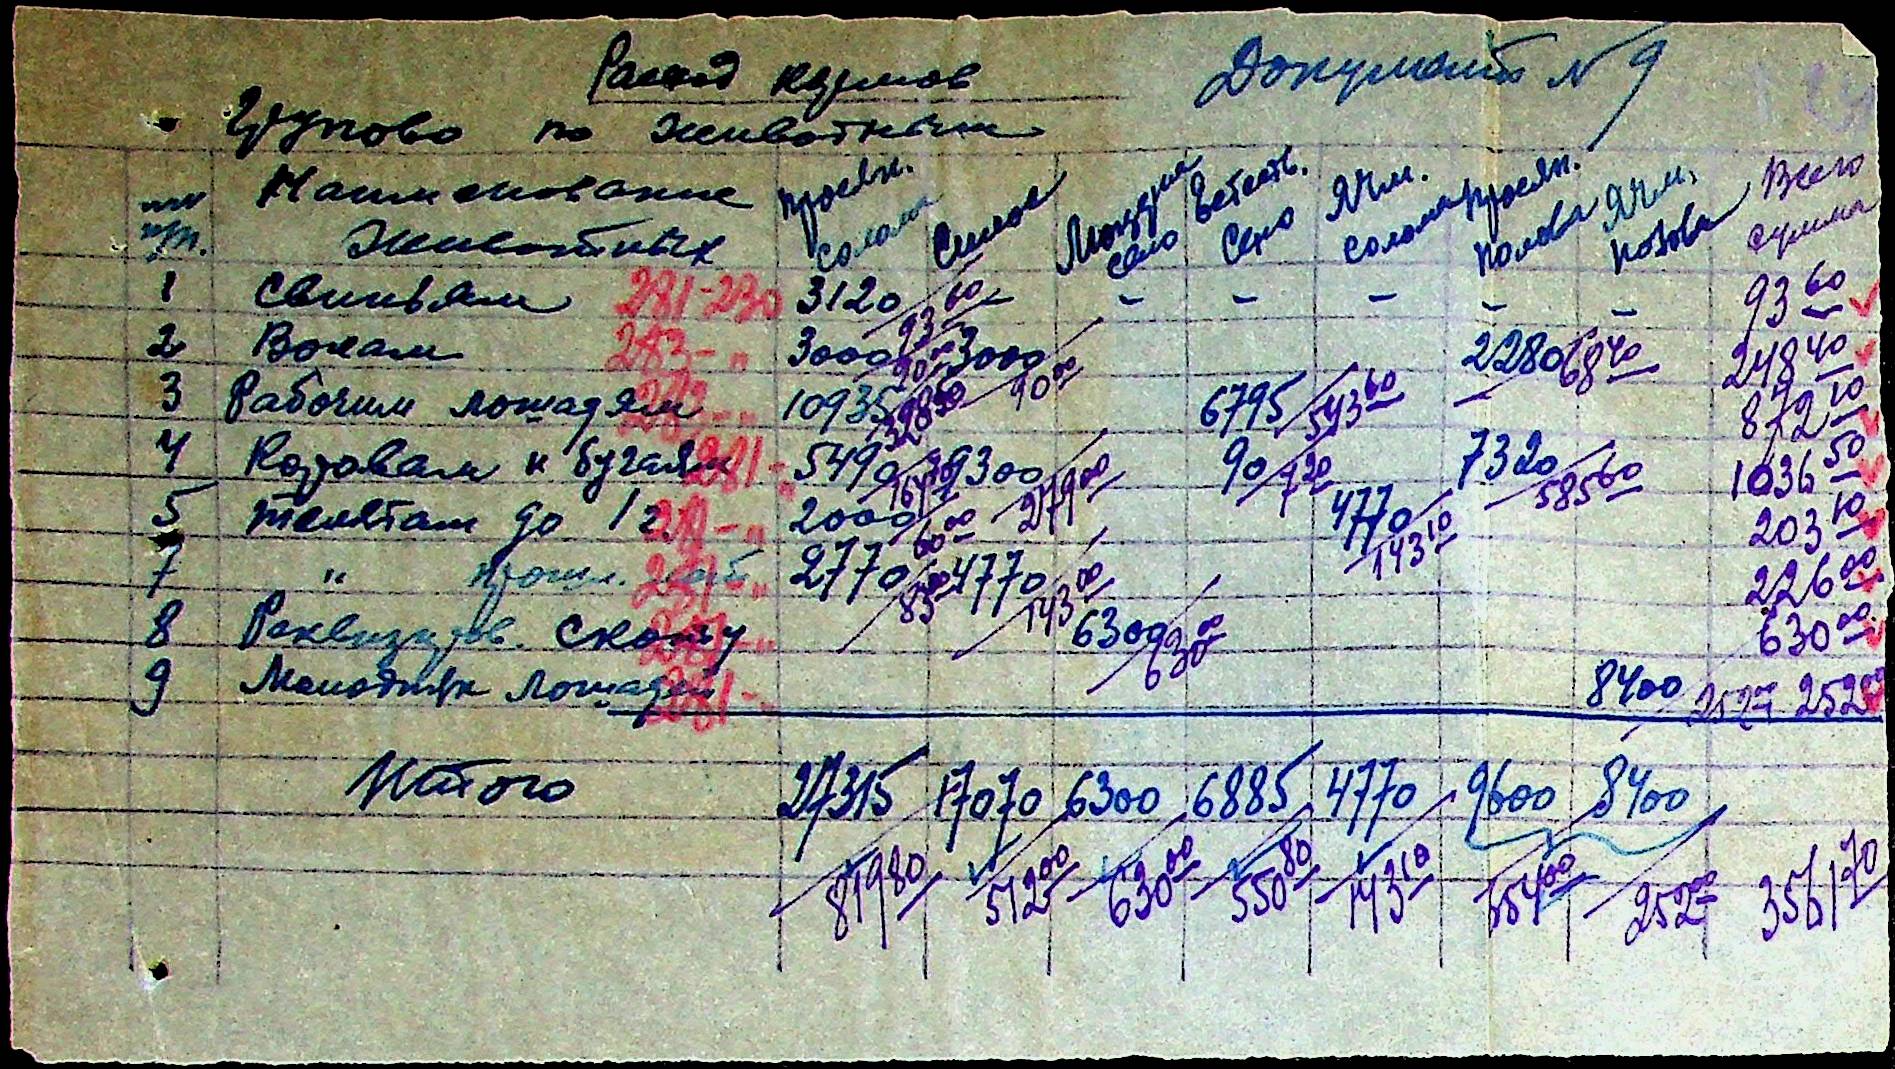 Расход кормов Документ № 9
Групово по животным
№№ п/п. Наименование животных просян. солома Силос сено Естеств. Сено Ячм. солома просян. полова Ячм. полова Всего сумма
1 Свиньям 281-230 3120 93 60 - - - - - 93 60
2 Волам 283- " 3000 90 00 3000 90 00 2280 68 40 248 40
3 Рабочим лошадям 10935 328 50 6795 543 60 872 10
4 Коровам и бугаям 281- " 5490 164 70 9300 279 00 90 7 20 7320 585 60 1036 50
5 Телятам до 1 г. - " 2000 60 00 4770 143 10 203 10
7 " прошл. " 2770 83 00 4770 143 00 226 00
8 Реквизиров. Скоту " 6300 630 00 630 00
9 Молодняк лошадей 281- 8400 252 00 252 00
Итого 27315 17070 6300 6885 4770 9600 8400
819 80 512 00 630 00 550 80 143 10 654 00 252 00 3561 70